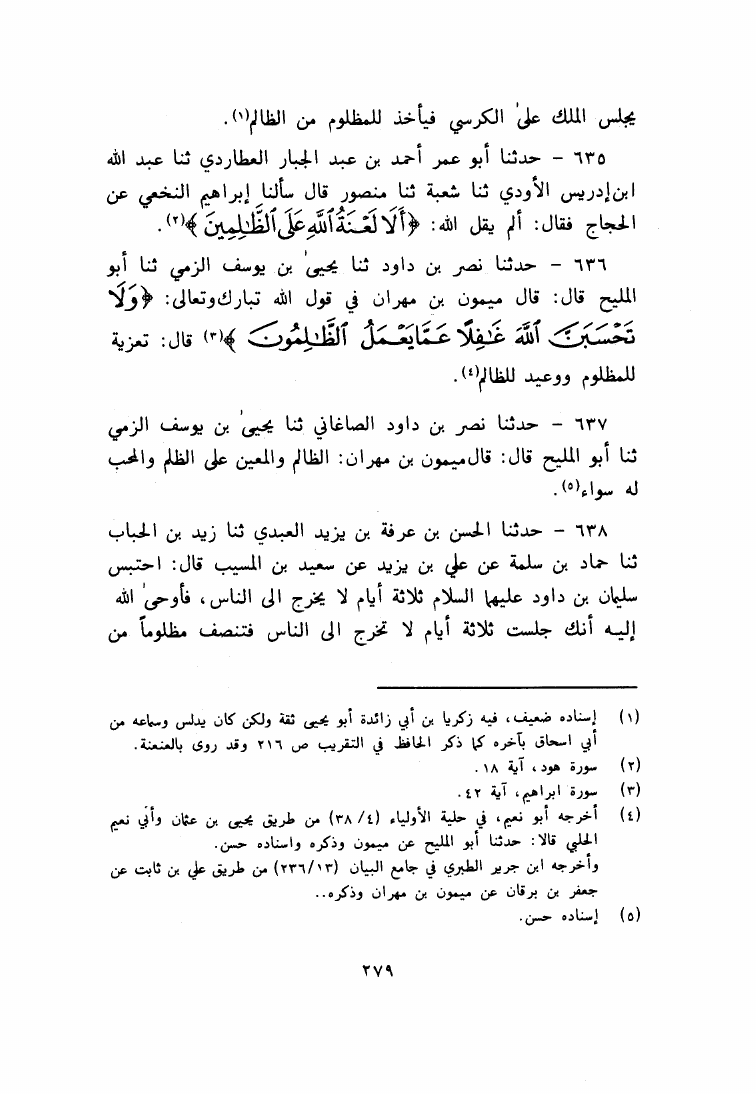 يجلس الملك علىٰ الكرسي فيأخذ للمظلوم من الظالم(١).
٦٣٥ – حدثنا أبو عمر أحمد بن عبد الجبار العطاردي ثنا عبد الله
ابن إدريس الأودي ثنا شعبة ثنا منصور قال سألنا إبراهيم النخعي عن
الحجاج فقال: ألم يقل الله: ﴿أَلَا لَعْنَةُ ٱللَّهِ عَلَى ٱلظَّٰلِمِينَ﴾(٢).
٦٣٦ – حدثنا نصر بن داود ثنا يحيىٰ بن يوسف الزمي ثنا أبو
المليح قال: قال ميمون بن مهران في قول الله تبارك وتعالى: ﴿وَلَا
تَحْسَبَنَّ ٱللَّهَ غَٰفِلًا عَمَّا يَعْمَلُ ٱلظَّٰلِمُونَ﴾(٣) قال: تعزية
للمظلوم ووعيد للظالم(٤).
٦٣٧ – حدثنا نصر بن داود الصاغاني ثنا يحيىٰ بن يوسف الزمي
ثنا أبو المليح قال: قال ميمون بن مهران: الظالم والمعين على الظلم والمحب
له سواء(٥).
٦٣٨ – حدثنا الحسن بن عرفة بن يزيد العبدي ثنا زيد بن الحباب
ثنا حماد بن سلمة عن علي بن يزيد عن سعيد بن المسيب قال: احتبس
سليمان بن داود عليهما السلام ثلاثة أيام لا يخرج الى الناس، فأوحىٰ الله
إليه أنك جلست ثلاثة أيام لا تخرج الى الناس فتنصف مظلوماً من
(١) إسناده ضعيف، فيه زكريا بن أبي زائدة أبو يحيى ثقة ولكن كان يدلس وسماعه من
أبي اسحاق بآخره كما ذكر الحافظ في التقريب ص ٢١٦ وقد روى بالعنعنة.
(٢) سورة هود، آية ١٨.
(٣) سورة ابراهيم، آية ٤٢.
(٤) أخرجه أبو نعيم، في حلية الأولياء (٣٨/٤) من طريق يحيى بن عثمان وأبي نعيم
الحلبي قالا: حدثنا أبو المليح عن ميمون وذكره واسناده حسن.
وأخرجه ابن جرير الطبري في جامع البيان (٢٣٦/١٣) من طريق علي بن ثابت عن
جعفر بن برقان عن ميمون بن مهران وذكره..
(٥) إسناده حسن.
٢٧٩